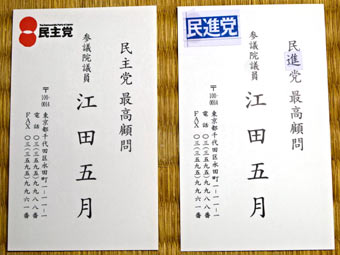 民主党
民主党 最高顧問
参議院議員
江田五月
〒100-0014
東京都千代田区永田町一-一-一
電話 〇三(三五九五)九九八八番
FAX 〇三(三五九五)九九六一番
民進党
民進党 最高顧問
参議院議員
江田五月
〒100-0014
東京都千代田区永田町一-一-一
電話 〇三(三五九五)九九八八番
FAX 〇三(三五九五)九九六一番